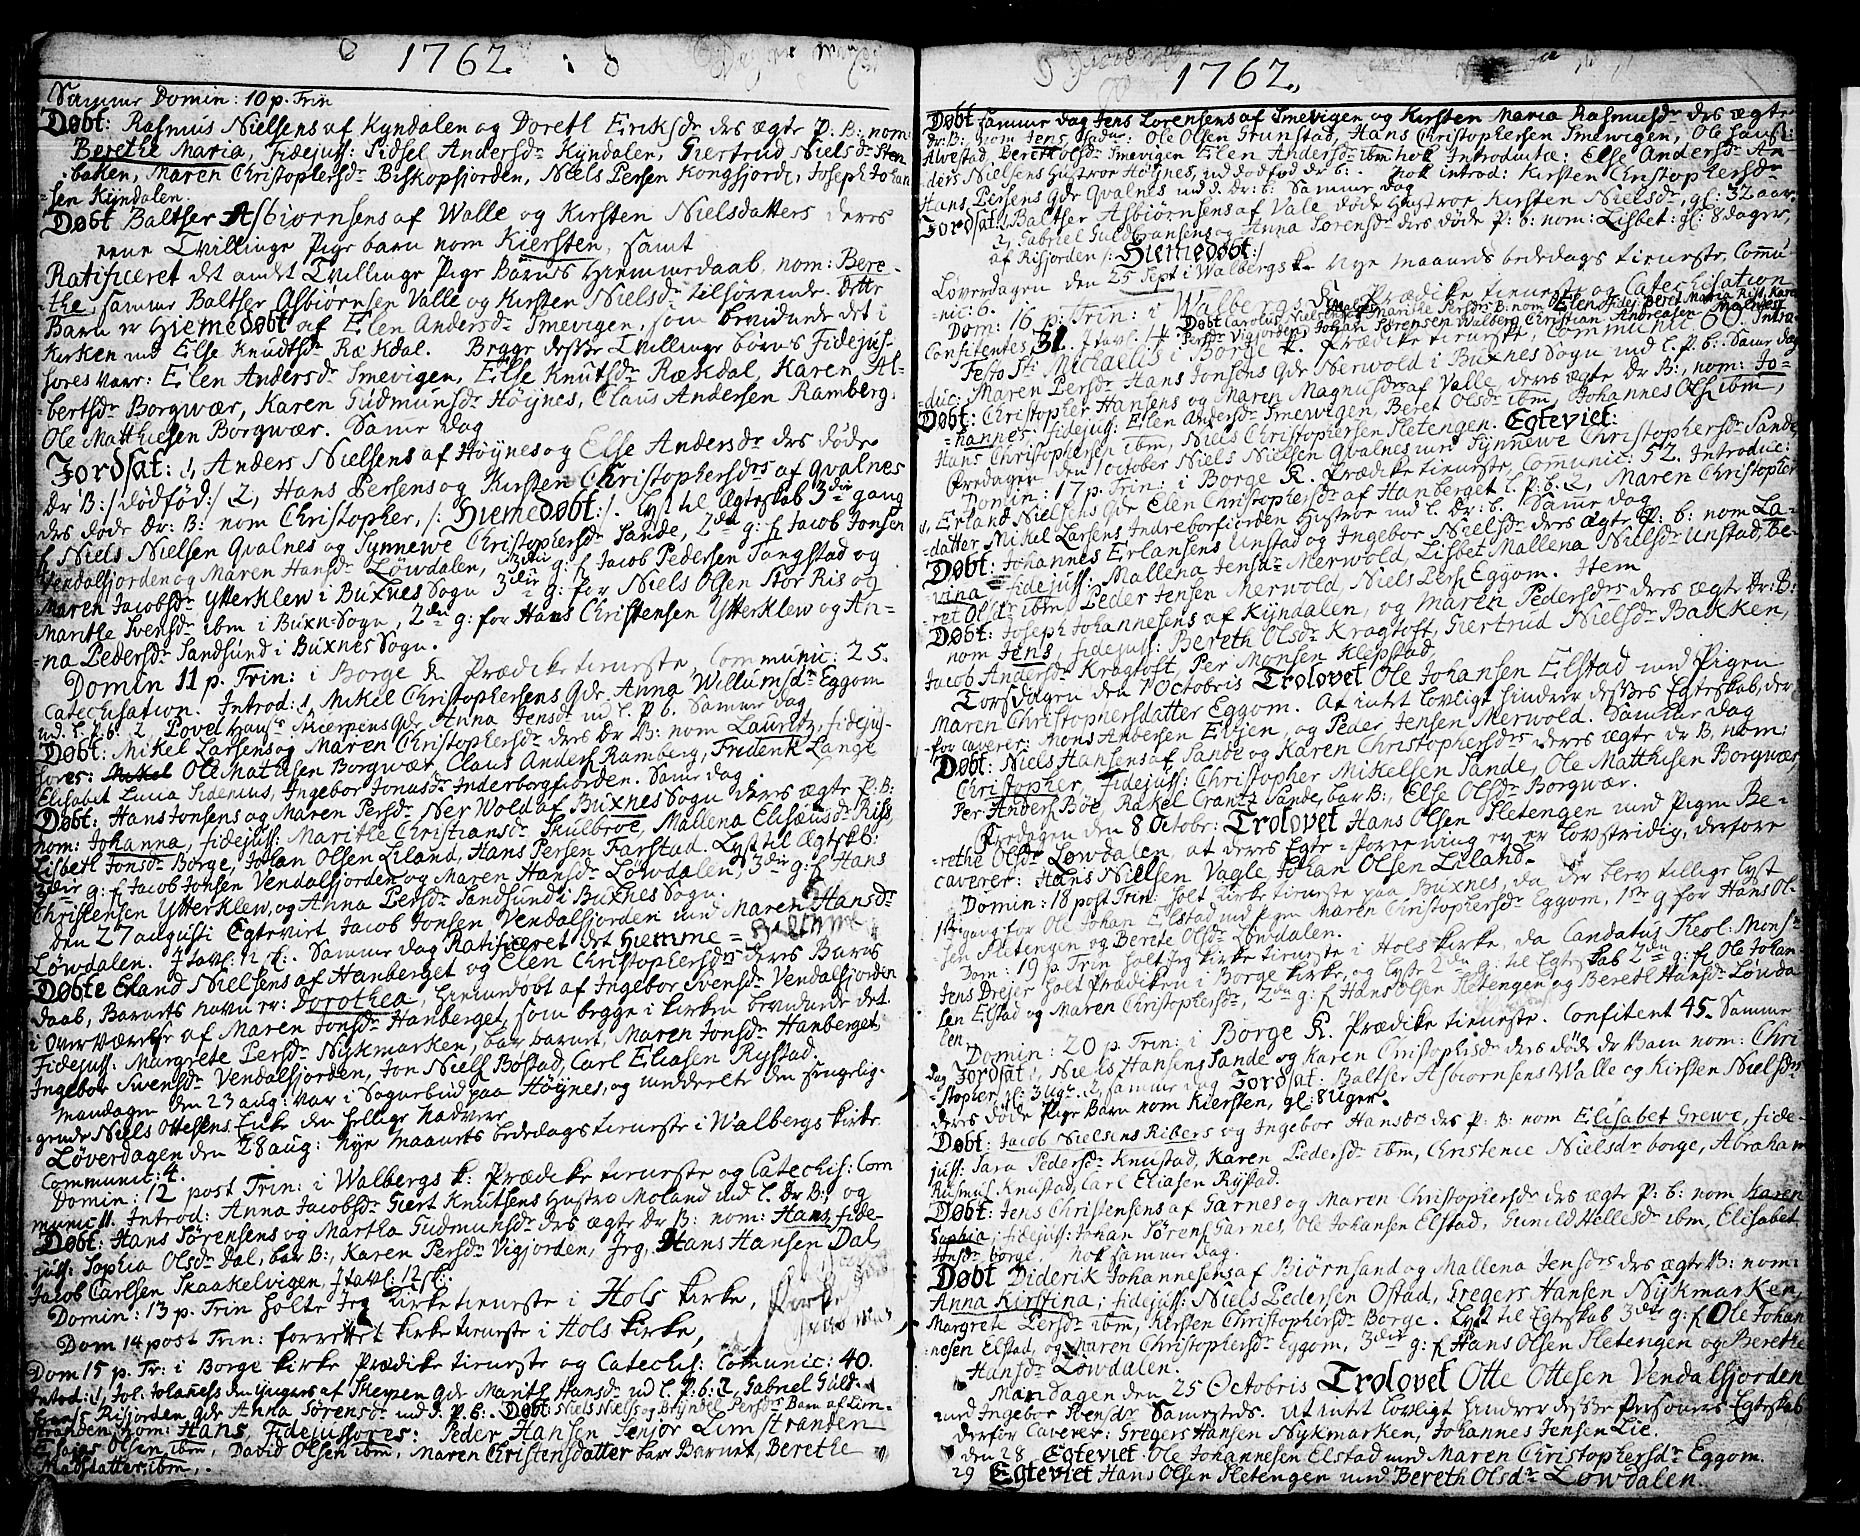 1762.
Samme Domin: 10 p. Trin
Døbt: Rasmus Nielsens af Kyndalen og Doreth Eriksdr. des ægte P: B: nom:
Berethe Maria, Fidejuss: Sidsel Andersdr. Kyndalen, Giertrud Nielsdr. Sten
baken, Maren Christophersdr. Biskopfjorden, Niels Persen Kongsjorde, Joseph Johan
=sen Kyndalen.
Døbt Baltser Asbiørnsens af Walle og Kirsten Nielsdatters deres
ene Tvillinge Pige barn nom Kiersten, samt
Ratificeret det andet Tvillinge Pige Barns Hiemmedaab, nom: Bere-
=the, samme Baltser Asbiørnsen Valle og Kirsten Nielsdr. tilhørende. dette
Barn er Hiemedøbt af Elen Andersdr. Smevigen, som bevidnede det i
Kirken med Else Knudtsdr. Rækdal. Begge desse Tvillinge børns Fidejus-
sores vaar: Elen Andersdr. Smevigen, Else Knutsdr. Rækdal, Karen Al-
=bertsdr. Borgwær, Karen Gudmunsdr. Høynes, Claus Andersen Ramberg,
Ole Matthiesen Borgwær. Same dag
Jordsat: 1, Anders Nielsens af Høynes og Else Andersdr. des døde
Dr: B: /: dødfød :/ 2, Hans Persens og Kirsten Christophersdrs. af Qvalnes
des døde Dr: B: nom Christopher, /: Hiemedøbt :/. Lyst til Ægteskab 3die gang
f Niels Nielsen Qvalnes og Synnewe Christophersdr. Sande, 2den g: f Jacob Jonsen
Vendalsjorden og Maren Hansdr. Løwdalen, 3die g: f Jacob Pedersen Tangstad og
Maren Jacobsdr. Ytterklew i Buxnes Sogn 3die g: for Niels Olsen Stor Ris og
Marithe Svensdr. ibm i Buxn=Sogn, 2den g: for Hans Christensen Ytterklew og An-
=na Pedersdr. Sandsund i Buxnes Sogn.
Domin 11 p. Trin: i Borge K Prædike tieneste, Communic: 25.
Catechisation. Introd: 1, Mikel Christophersens Qde Anna Willumsdr. Eggom
med l. P. b. 2, Povel Hans Qde Anna Jensdr. med l. P. b. Samme dag
Døbt: Mikel Larsens og Maren Christophersdr. deres Dr B: nom Laurids, fidejus-
sores: Ole Mathisen Borgwær, Claus Anders Ramberg, Friderik Lange
Elisabet Lucia Sidenius, Ingebor Jonasdr. Inderborgfiorden. Same dag
Døbt: Hans Jonsens og Maren Persdr. Ner Wold af Buxnes Sogn deres ægte P: B:
nom: Johanna, fidejuss: Marithe Christiansdr. Skulbroe, Mallena Elisæusdr. Riss,
Lisbeth Jonsdr. Borge, Johan Olsen Liland, Hans Persen Farstad. Lyst til Ægteskb:
3die g: f Jacob Jonsen Vendalsfjorden og Maren Hansdr. Løwdalen, 3die g: f Hans
Christensen Ytterklew, og Anna Persdr. Sandsund i Buxnes Sogn.
Den 27 augusti Egteviet Jacob Jonsen Vendalsjorden med Maren Hansdr
Løwdalen. Samme dag Ratificeret det Hiemme=
Døbte Erland Nielsens af Hanberget og Elen Christophersdrs deres Barns
daab, Barnets navn er: Dorothea, hiemedøbt af Ingebor Svensdr. Vendalsfjorden
i overværelse af Maren Jonsdr. Hanberget, som begge i Kirken bevidnede det.
Fidejuss: Margrete Persdr. Nykmarken, bar barnet, Maren Jonsdr. Hanberget,
Ingebor Svensdr. Vendalsfjorden, Jon Niels Bøstad, Carl Eliasen Rystad.
Mandagen den 23 aug: var i Sognebud paa Høynes, og meddeelte den sengelig-
gende Niels Ottesens Enke den hellige Nadvere
Løverdagen den 28 aug: Nye Maaneds bededags tieneste i Walbergs Kirke.
Communic: 4.
Domin: 12 post Trin: i Walbergs K: Prædike tieneste og Catechis: Com
munic 11. Introd: Anna Jacobsdr. Giert Knutsens Hustro Moland med l. Dr B:, og
Døbt: Hans Sørensens og Martha Gudmunsdr. des ægte Dr B: nom: Hans, fide-
juss: Sophia Olsdr. Dal, bar B:, Karen Persdr. Vigjorden, Jeg, Hans Hansen Dal,
Jacob Carlsen Skaakelvigen, J tavl: 12 sk:.
Domin: 13 p. Trin holte Jeg Kirke tieneste i Hols Kirke,
Dom 14 post Trin: forrettet Kirke tieneste i Hols Kirke,
Dom 15 p. Tr: i Borge Kirke Prædike tieneste og Catechis: Comunic: 40.
Introd: 1, Joh: Johaness den yngers af Skepen Qde Marith Hansdr med l. P: b: 2, Gabriel Guld-
brans Risjorden Qde Anna Sørensdr. med d: p. b: Døbt Niels Niels og Bryndel Persdr Barn af Lim-
stranden, nom: Hans, Fidejussores: Peder Hansen Senjor Limstranden
Elsais Olsen ibm, David Olsen ibm, Maren Christensdatter bar Barnet, Berethe
Madsdatter ibm.
1762.
Døbt samme dag Jens Lorensens af Smevigen og Kirsten Maria Rasmusdr. des ægte
Dr: B: nom Jens, Ole Olsen Grunstad, Hans Christophersen Smevigen, Ole
Alvestad, Bereth Olsdr. Smevigen Elen Andersdr. ibm. Nok Introductæ: Else Andersdr. An
ders Nielsens Hustroe Høynes, med dødfød dr b:. Nok introd: Kirsten Christophersdr
Hans Persens Qde Qvalnes med d. Dr: b: Samme dag
Jordsat: 1, Baltser Asbiørnsens af Vale døde Hustroe Kirsten Nielsdr. gl: 32 aar.
2, Gabriel Guldbransens og Anna Sørensdr. des døde P: b: nom: Lisbet: gl: 8 dager,
af Risjorden /: Hiemedøbt :/
Løverdagen den 25 Sept i Walbergs K. Nye Maaneds bededags tieneste, Commu-
nic: 6.
Dom: 16 p: Trin: i Walbergs K. Prædike tieneste og Catechisation
Confitentes 31.
Festo Sti Michaelis i Borge K. Prædike tieneste, Communic 60. Intro-
=duc: Maren Persdr. Hans Jonsens Qde Nerwold i Buxnes Sogn med l. P. b: Samme dag
Døbt: Christopher Hansens og Maren Magnusdr. af Valle, deres ægte Dr B:, nom: Jo-
=hannes, fidejuss: Elen Andersdr. Smewigen, Beret Olsdr. ibm, Johannes Ols. ibm,
Hans Christophersen ibm, Niels Christophersen Sletengen. Egteviet:
Fredagen den 1 October Niels Nielsen Qvalnes med Synnewe Christophersdr. Sande,
Domin: 17 p. Trin: i Borge K. Prædike tieneste, Communic: 52. Introduce:
1, Erland Nielsens Qde Elen Christophersdr. af Hanberget l. P: b. 2, Maren Christopher
=datter Mikel Larsens Indreborfiorden Hustroe med l. Dr: b. Samme dag
Døbt: Johannes Erlansens Unstad og Ingebor Nielsdr. deres ægte P: b: nom La-
=vina, fidejuss: Mallena Jensdr. Merwold, Lisbet Mallena Nielsdr. Unstad, Be-
ret Olsdr. ibm, Peder Jensen Merwold, Niels Pers. Eggom. Item
Døbt: Joseph Johannesens af Kyndalen, og Maren Pedersdrs. deres ægte Dr: B:
nom Jens, fidejuss: Bereth Olsdr. Kragtoft, Giertrud Nielsdr. Bakken,
Jacob Andersdr. Kragtoft, Per Monsen Klepstad,
Torsdagen den 7 Octobris Trolovet Ole Johansen Elstad med Pigen
Maren Christophersdatter Eggom. At intet lovligt hindrer desses Egteskab, der-
for caverer: Mons Andersen Evjen, og Peder Jensen Merwold. Samme dag
Døbt: Niels Hansens af Sande og Karen Christophersdrs deres ægte dr B. nom:
Christopher, fidejuss: Christopher Mikelsen Sande, Ole Matthisen Borgwær,
Per Anders. Böe, Rakel Crantz Sande, bar B:, Else Olsdr. Borgwær.
Fredagen den 8 Octobr: Trolovet Hans Olsen Sletengen med Pigen Be-
=rethe Olsdr. Løwdalen, at deres Egte=foreening ey er lovstridig, derfore
caverer: Hans Nielsen Vagle Johan Olsen Liland.
Domin: 18 post Trin: holt Kirke tieneste paa Buxnes, da der blev tillige lyst
1ste gang for Ole Johan Elstad med Pigen Maren Christophersdr. Eggom, 1ste g for Hans Ol-
sen Sletengen og Berete Olsdr. Løwdalen.
Dom: 19 p. Trin holt Jeg Kirke tieneste i Hols Kirke, da Candatus Theol: Monsr
Jens Drejer holt Prædiken i Borge Kirke, og lyste 2den g: til Egteskab 2den g: f Ole Johan
sen Elstad og Maren Christophersdr., 2den g: f Hans Olsen Sletengen og Bereth Hansdr. Løwda
len.
Domin: 20 p. Trin: i Borge K. Prædike tieneste. Confitent 45. Samme
dag Jordsat 1, Niels Hansens Sande og Karen Christophersdr. des døde dr Barn nom: Chri
=stopher gl: 3 uger. 2, samme dag Jordsat: Baltser Asbiørnsens Walle og Kirsten Nielsdr.
deres døde Pige Barn nom Kiersten, gl: 8 Uger.
Døbt: Jacob Nielsens Ribers og Ingebor Hansdrs des P: B: nom Elisabet Grewe, fide-
juss: Sara Pedersdr. Knustad, Karen Pedersdr. ibm, Christence Nielsdr borge, Abraham
Rasmus. Knustad, Carl Eliasen Rystad.
Døbt: Jens Christensens af Garnes og Maren Christophersdr. des ægte P: b: nom Karen
Sophia, fidejuss: Johan Sørens. Garnes, Ole Johansen Elstad, Gunild Hellesdr. ibm, Elisabet
Jonsdr. borge, Nok samme dag.
Døbt Diderik Johannesens af Biørnsand og Mallena Jensdrs des ægte B: nom:
Anna Kirstina, fidejuss: Niels Pedersen Ostad, Gregers Hansen Nykmarken,
Margrete Persdr. ibm, Kirsten Christophersdr. Borge. Lyst til Egteskab 3die g: f Ole Johan
nesen Elstad, og Maren Christophersdr. Eggom, 3die g: f Hans Olsen Sletengen og Berethe
Hansdr. Løwdalen.
Mandagen den 25 Octobris Trolovet Otte Ottesen Vendalsfjorden
med Ingebor Stensdr. Samesteds. At intet lovligt hindrer desse Personers Egteskab
derfor Caverer: Gregers Hansen Nykmarken, Johannes Jensen Lie.
den 28 Egteviet Ole Johannesen Elstad med Maren Christophersdr. Eggom.
29 Egteviet Hans Olsen Sletengen med Bereth Olsdr. Løwdalen.